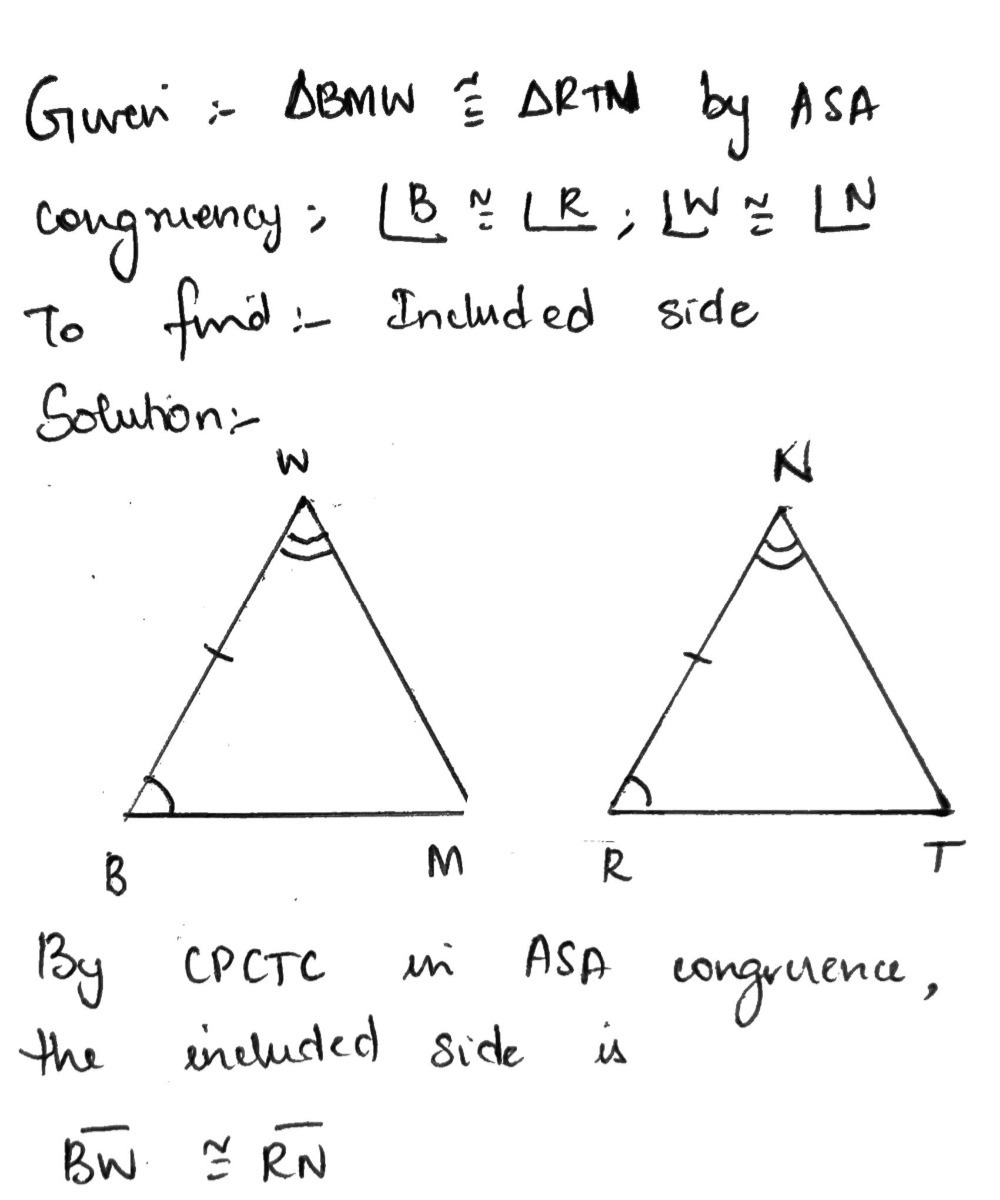 Given :- ΔBMW ≅ ΔRTN by ASA
congruency; ∠B ≅ ∠R ; ∠W ≅ ∠N
To find :- Included side
Solution:-
W N
B M R T
By CPCTC in ASA congruence,
the included side is
B̅W̅ ≅ R̅N̅